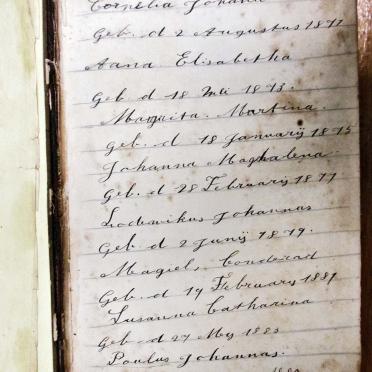 Cornelia Johanna
Geb. d 2 Augustus 1871
Anna Elisabetha
Geb d 18 1873.
Magrita. Martina.
geb. d 18 Januarij 1875
Johanna Maghalena.
Geb. d 28 Februarij 1877
Lodewikus Johannas
Geb. d 2 Junij 1879.
Magiel, Conderad
Geb. d 14 Februarij 1881
Susanna Catharina
Geb d 27 Mey 1883
Paulus Johannas.